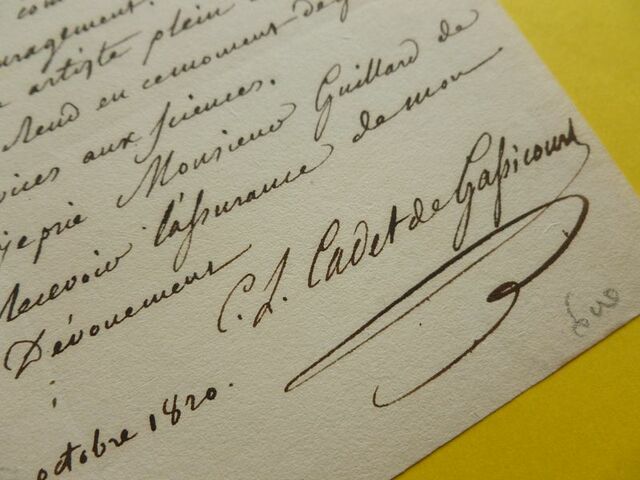 com
uragement.
artiste plein d
rend en ce moment de
vices aux sciences.
je prie Monsieur Guillard de
recevoir l'assurance de mon
Dévouement
C. L. Cadet de Gassicourt
octobre 1820.